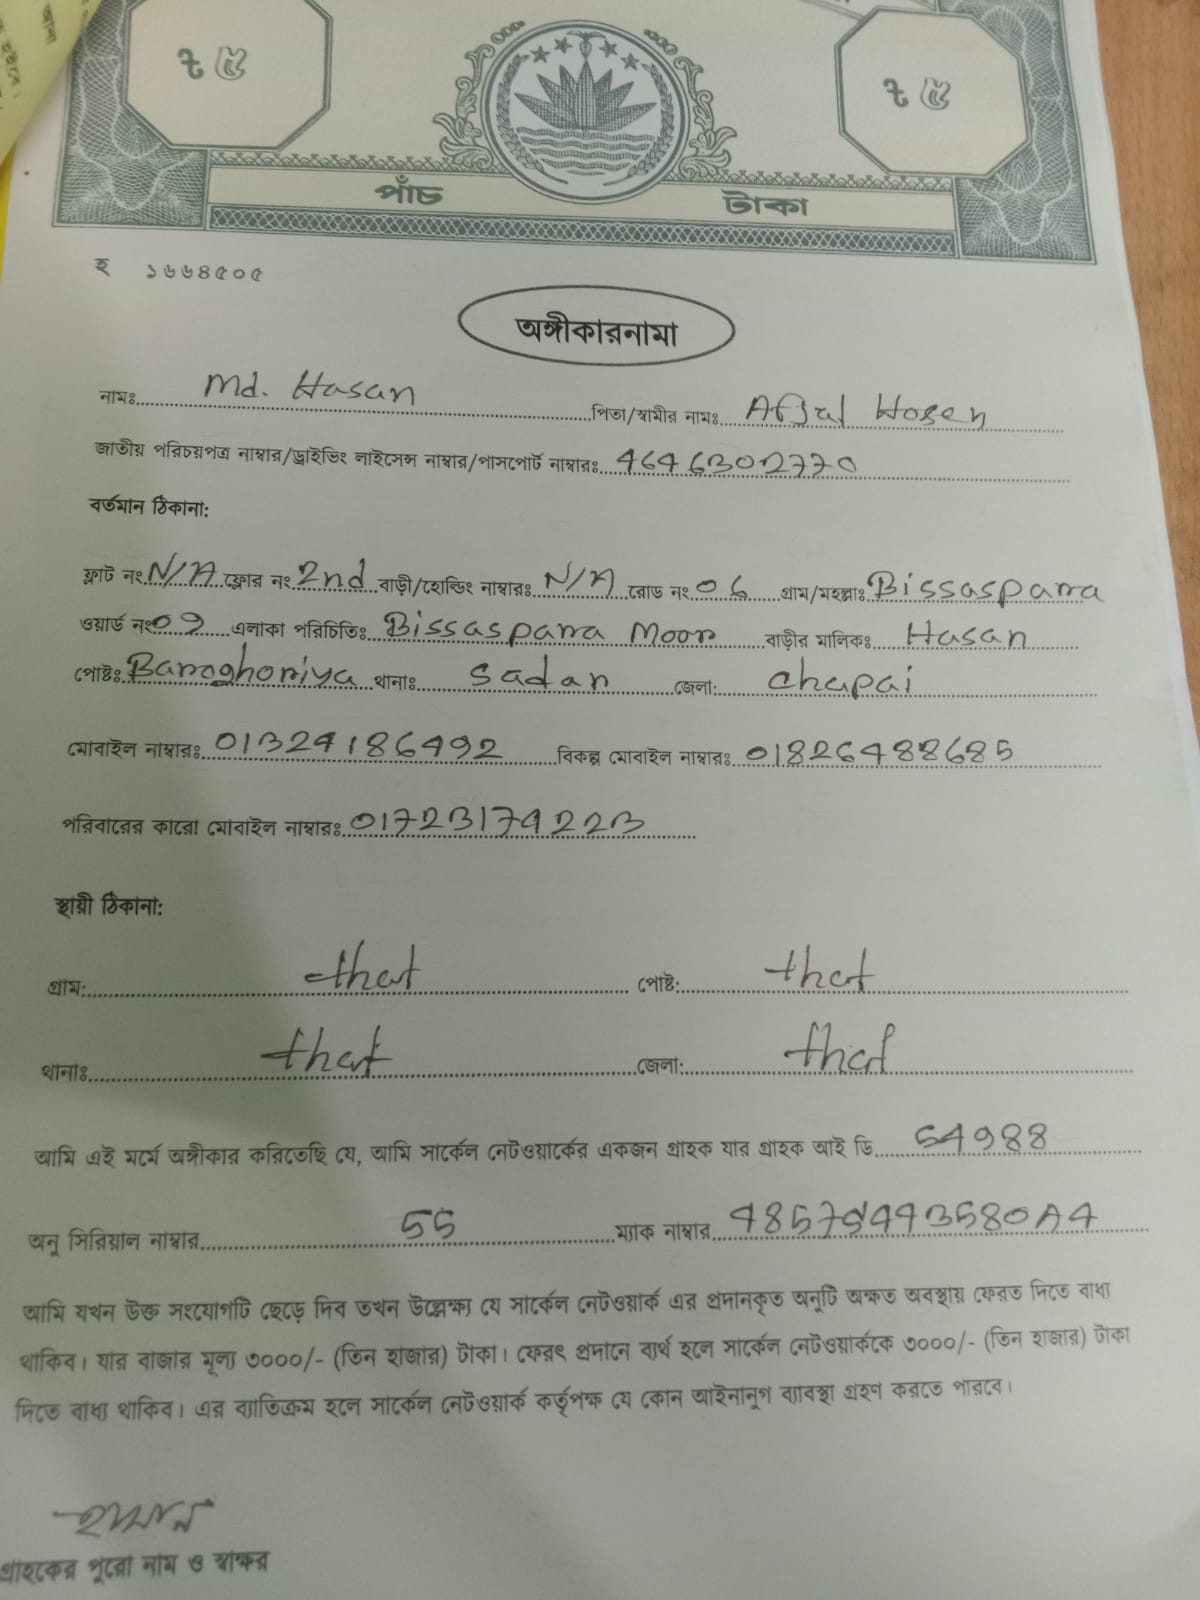 ৳ ৫ ৳ ৫
পাঁচ টাকা
হ ১৬৬৪৫০৫
অঙ্গীকারনামা
নামঃ Md. Hasan পিতা/স্বামীর নামঃ Afjal Hosen
জাতীয় পরিচয়পত্র নাম্বার/ড্রাইভিং লাইসেন্স নাম্বার/পাসপোর্ট নাম্বারঃ 4646302770
বর্তমান ঠিকানা:
ফ্লাট নং N/A ফ্লোর নং 2nd বাড়ী/হোল্ডিং নাম্বারঃ N/A রোড নং 06 গ্রাম/মহল্লাঃ Bissasparra
ওয়ার্ড নং 09 এলাকা পরিচিতিঃ Bissasparra Moor বাড়ীর মালিকঃ Hasan
পোষ্টঃ Baroghoriya থানাঃ Sadar জেলা: Chapai
মোবাইল নাম্বারঃ 01324186492 বিকল্প মোবাইল নাম্বারঃ 01826488685
পরিবারের কারো মোবাইল নাম্বারঃ 01723174223
স্থায়ী ঠিকানা:
গ্রাম: that পোষ্ট: that
থানাঃ that জেলা: that
আমি এই মর্মে অঙ্গীকার করিতেছি যে, আমি সার্কেল নেটওয়ার্কের একজন গ্রাহক যার গ্রাহক আই ডি 54988
অনু সিরিয়াল নাম্বার 55 ম্যাক নাম্বার
আমি যখন উক্ত সংযোগটি ছেড়ে দিব তখন উল্লেক্ষ্য যে সার্কেল নেটওয়ার্ক এর প্রদানকৃত অনুটি অক্ষত অবস্থায় ফেরত দিতে বাধ্য
থাকিব। যার বাজার মূল্য ৩০০০/- (তিন হাজার) টাকা। ফেরৎ প্রদানে ব্যর্থ হলে সার্কেল নেটওয়ার্ককে ৩০০০/- (তিন হাজার) টাকা
দিতে বাধ্য থাকিব। এর ব্যাতিক্রম হলে সার্কেল নেটওয়ার্ক কর্তৃপক্ষ যে কোন আইনানুগ ব্যাবস্থা গ্রহণ করতে পারবে।
হাসান
গ্রাহকের পুরো নাম ও স্বাক্ষর